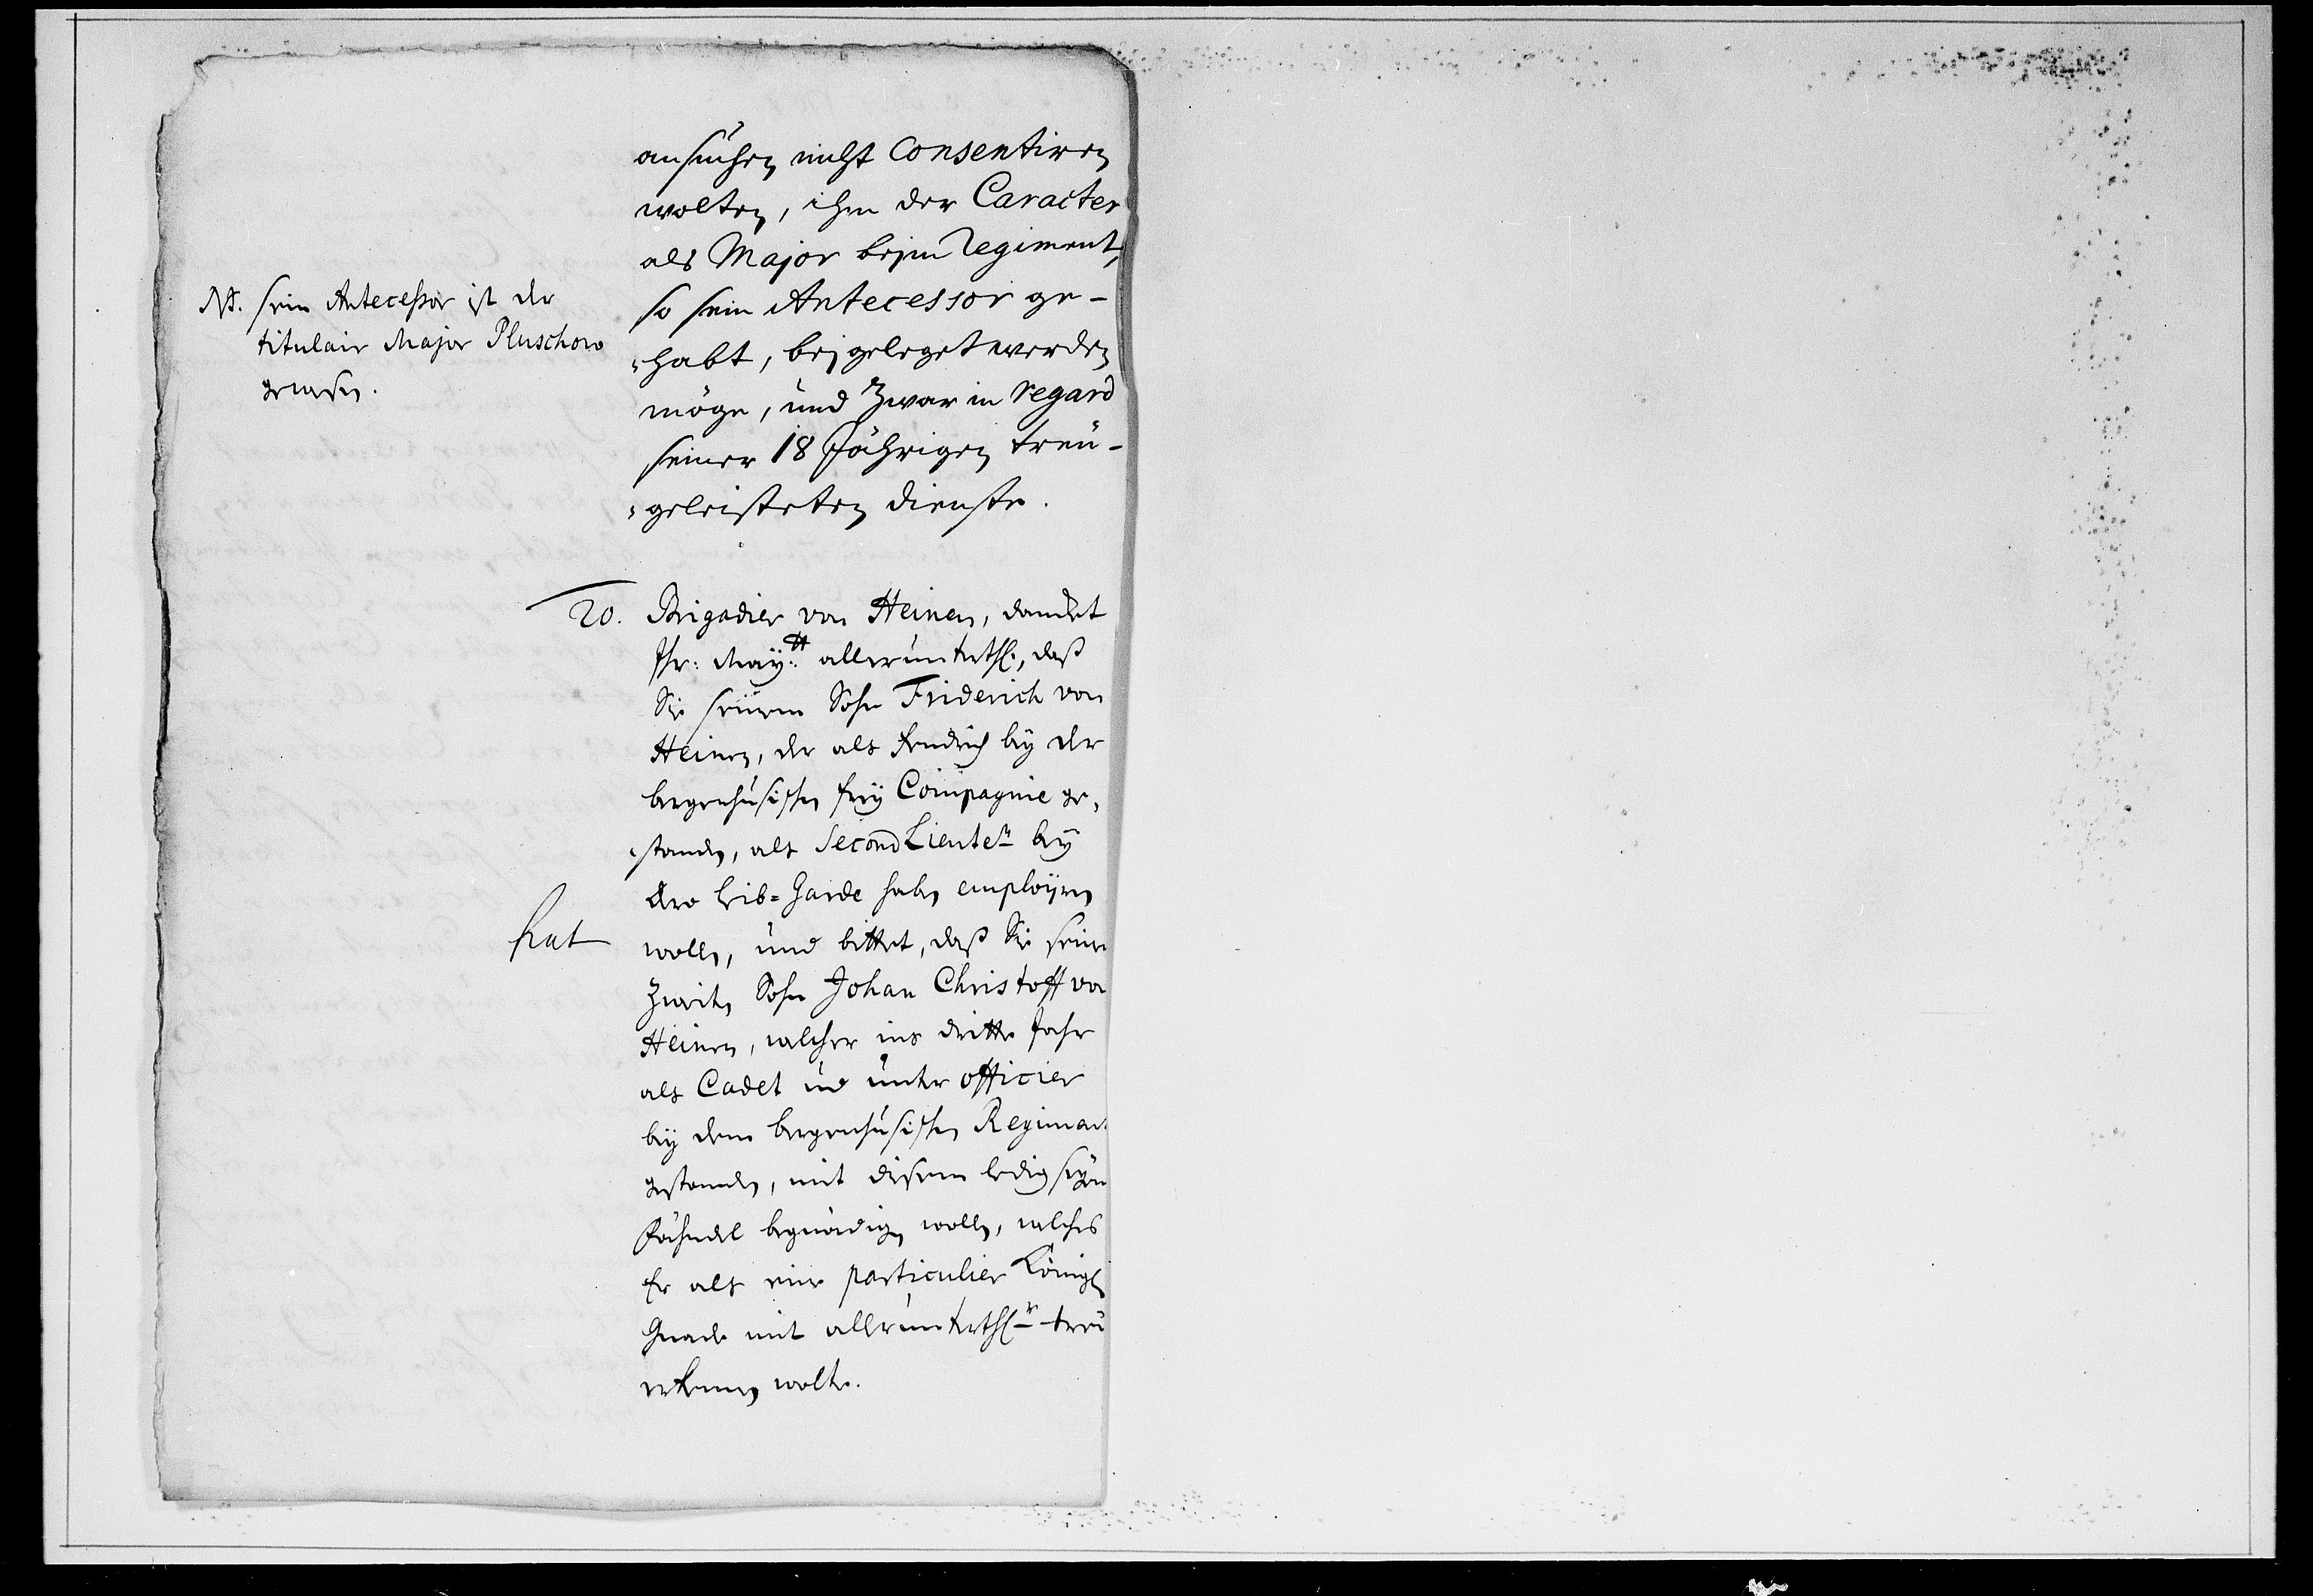 ansuchen nicht consentiren
wolten, ihm der Caracter
als Major beym Regiment,
so sein Antecessor ge-
habt, beygeleget werden
möge, und Zwar in regard
seiner 18 Jährigen treu-
geleisteten dienste.
NB. sein Antecessor ist der
titulair Major Pluschow
gewesen.
20. Brigadier von Heinen, dancket
Ihr: May:tt allerunterth., daß
Sie seinem Sohn Friderich von
Heinen, der als Fendrich bey der
bergenhusischen frey Compagnie ge-
standen, als Second Lieutn bey
dero Leib-Garde haben employren
wollen, und bittet, daß Sie seinen
Zweiten Sohn Johan Christoff von
Heinen, welcher ins dritte Jahr
als Cadet und unter officier
bey dem bergenhusischen Regiment
gestanden, mit diesem ledig seyen
Fähndel begnädigen wollen, welches
Er als eine particulier Königl
Gnade mit allerunterthr treu
erkennen wolte.
hat